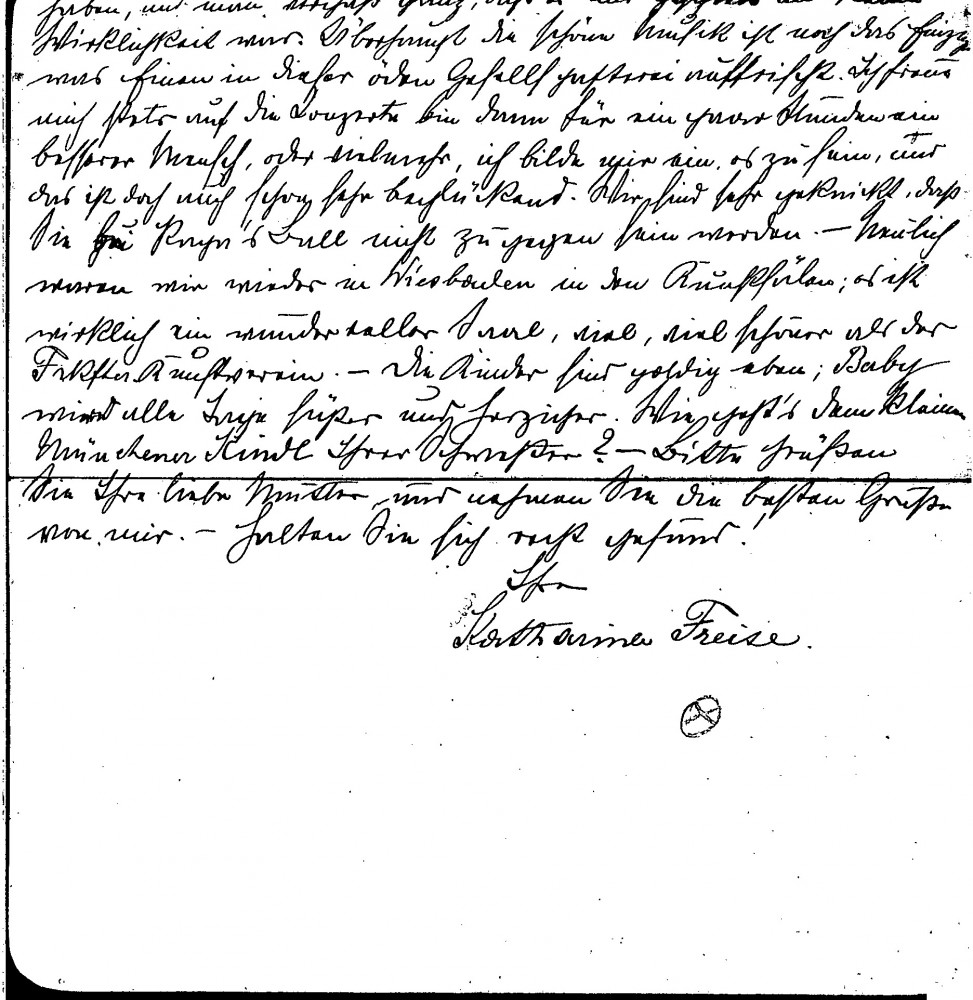 haben, und man vergaß ganz, daß es nur
Wirklichkeit war. Überhaupt die schöne Musik ist noch das Einzige
was Einen in dieser öden Gesellschafterei auffrischt. Ich freue
mich stets auf die Konzerte bin dann für ein paar Stunden ein
besserer Mensch, oder vielmehr, ich bilde mir ein, es zu sein, und
das ist doch auch schon sehr beglückend. Wir sind sehr geknickt, daß
Sie zu Ball nicht zugegen sein werden. — Neulich
waren wir wieder in Wiesbaden in den Kunstsälen; es ist
wirklich ein wundervoller Saal, viel, viel schöner als der
Frkfter Kunstverein. — Die Kinder sind goldig eben; Baby
wird alle Tage süßer und herziger. Wie geht's dem kleinen
Münchener Kindl Ihrer Schwester? — Bitte Grüßen
Sie Ihre liebe Mutter und nehmen Sie die besten Grüße
von mir. — Halten Sie sich recht gesund!
Ihre
Katharina Freise.